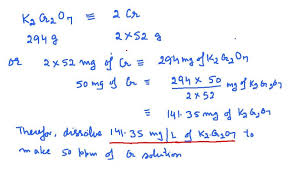 K₂Cr₂O₇ ≡ 2 Cr
294 g 2×52 g
or 2×52 mg of Cr ≡ 294 mg of K₂Cr₂O₇
50 mg of Cr ≡ 294 × 50 / 2×52 mg of K₂Cr₂O₇
≡ 141.35 mg of K₂Cr₂O₇
Therefor, dissolve 141.35 mg/L of K₂Cr₂O₇ to
make 50 ppm of Cr solution